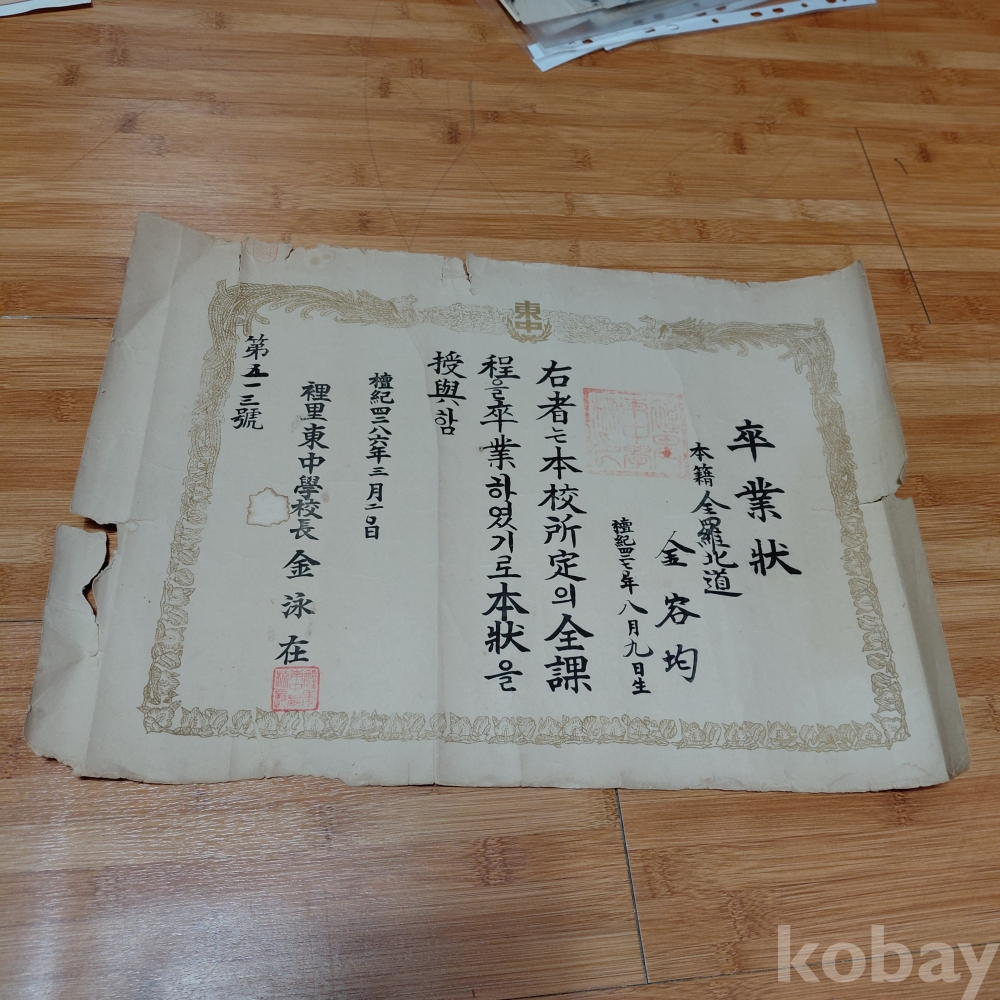 東中
卒業狀
本籍 全羅北道
金容均
檀紀四二七〇年八月九日生
右者는本校所定의全課
程을卒業하였기로本狀을
授與함
檀紀四二八六年三月二〇日
裡里東中學校長 金泳在
第五一三號
kobay